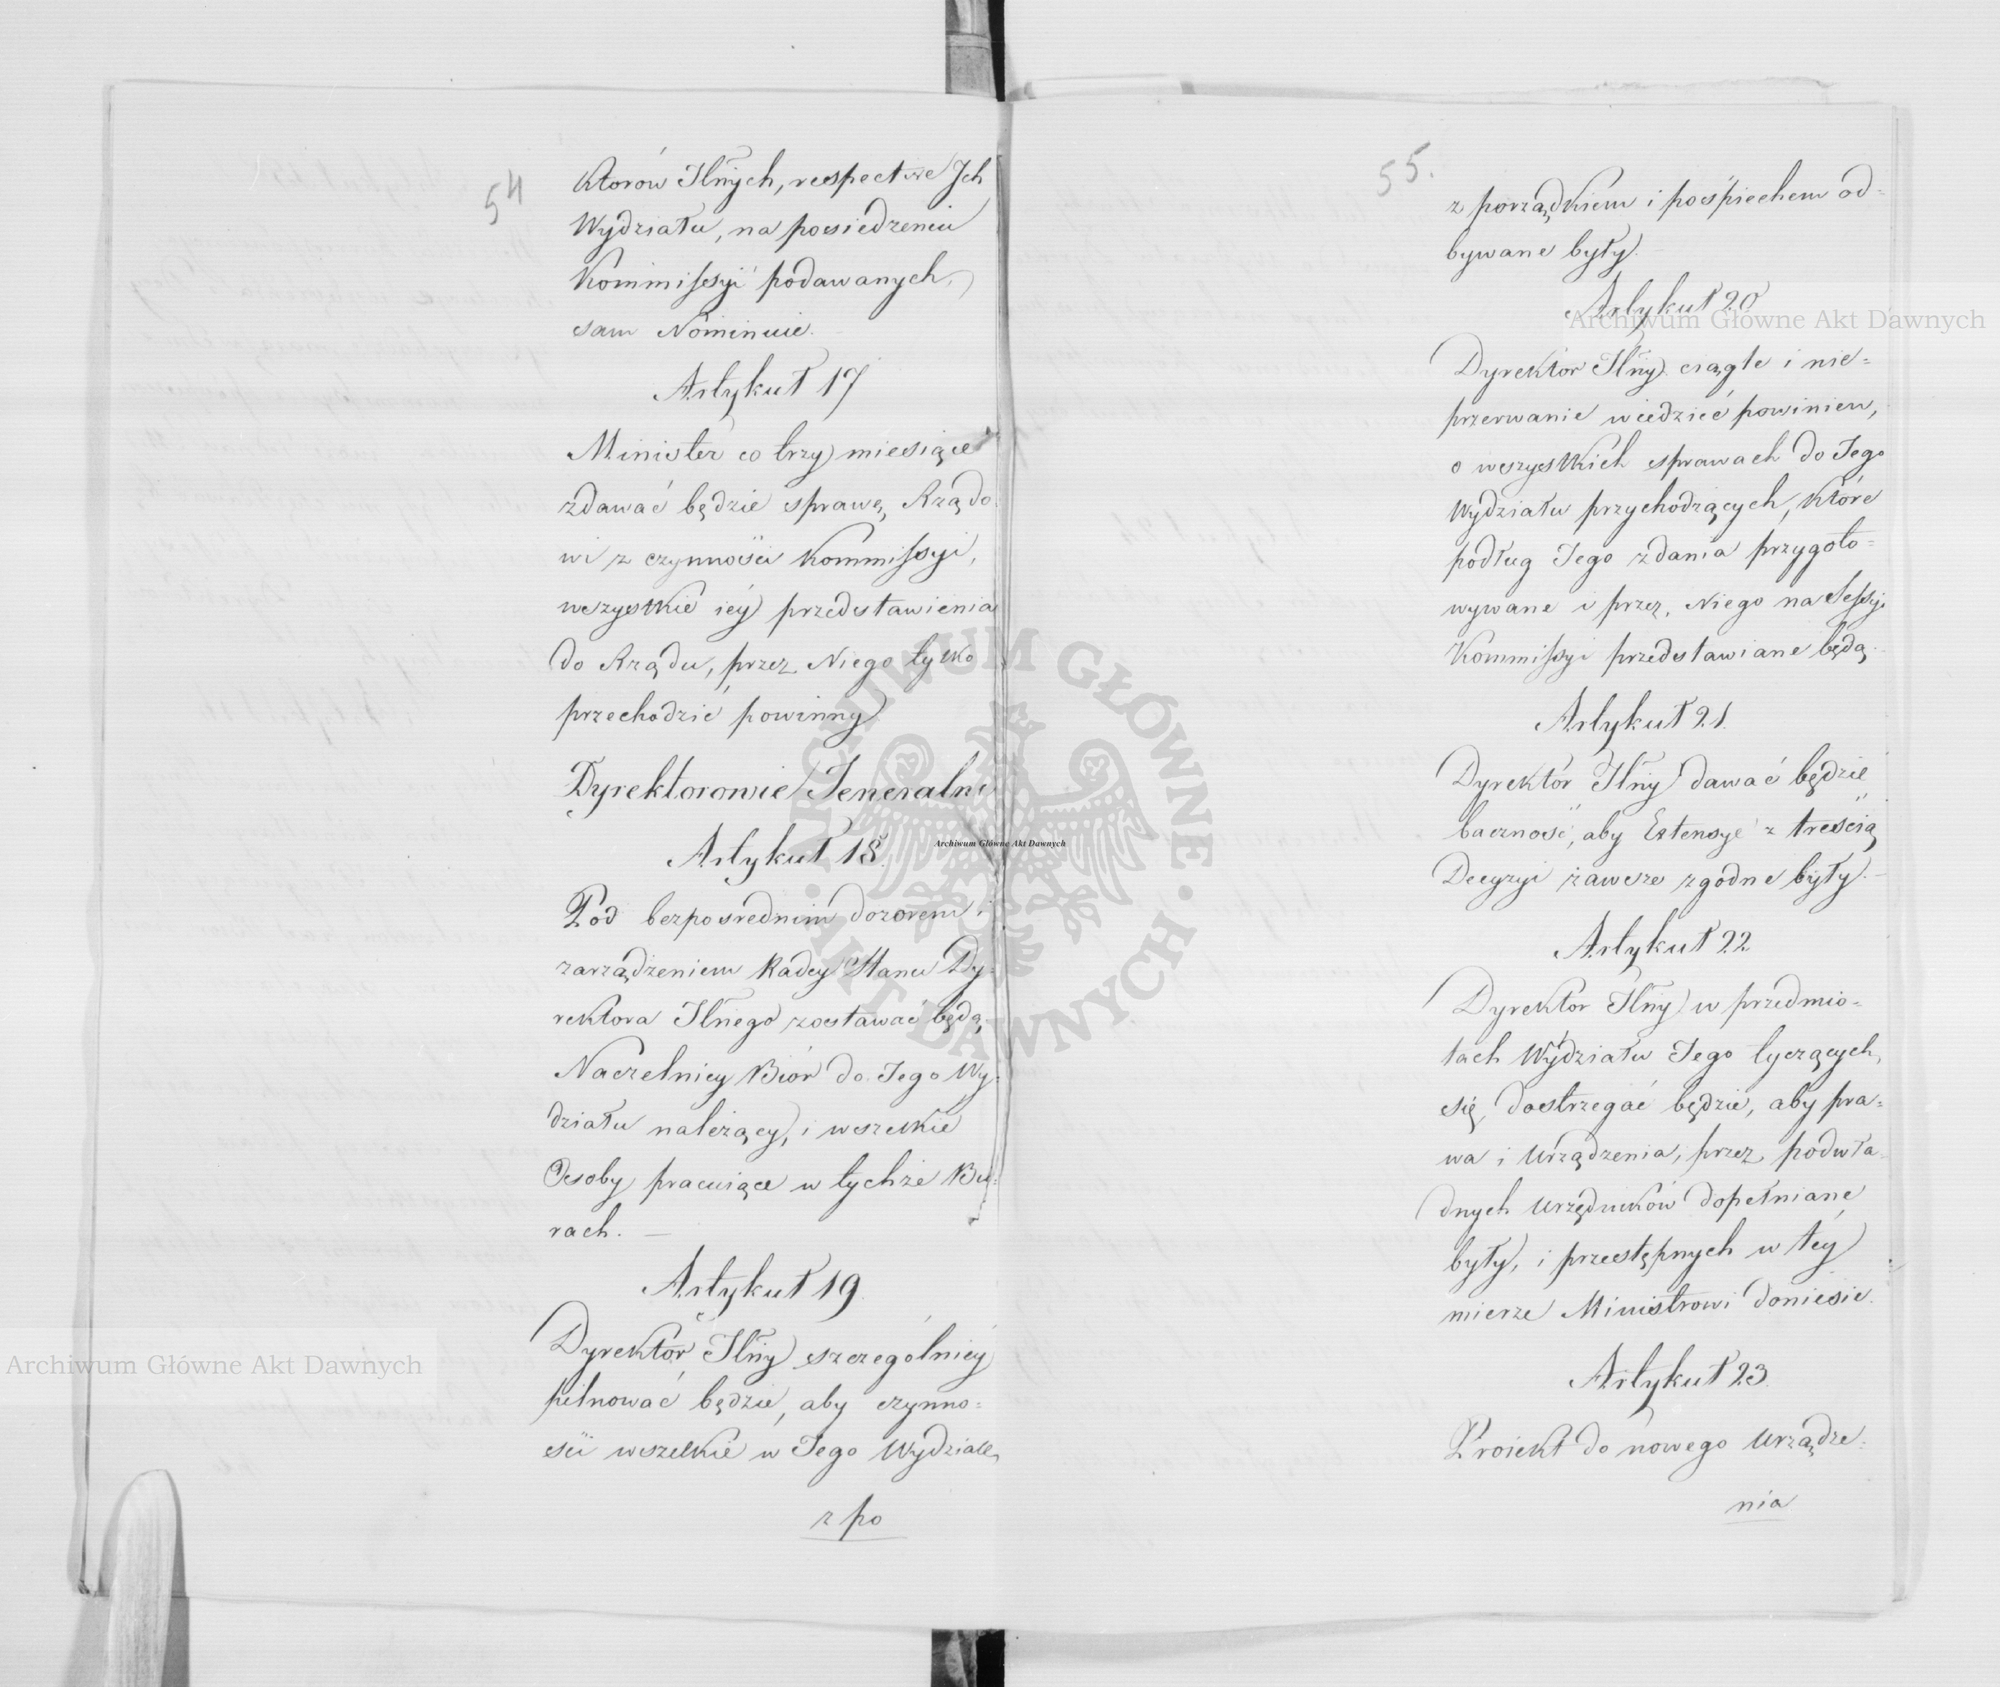 54
ktorów Jlnych, respective Jch
Wydziału, na posiedzeniu
Kommissyi podawanych,
sam Nominuie.
Artykuł 17
Minister co trzy miesiące
zdawać będzie sprawę Rządo
wi z czynności Kommissyi,
wszystkie iéy przedstawienia
do Rządu, przez Niego tylko
przechodzić powinny
Dyrektorowie Jeneralni
Artykuł 18.
Pod bezpośrednim dozorem i
zarządzeniem Radcy Stanu Dy=
rektora Jlnego zostawać będą
Naczelnicy Biór do Jego Wy=
działu należący, i wszelkie
Osoby pracuiące w tychże Bió=
rach. —
Artykuł 19.
Dyrektor Jlny szczególniéy
pilnować będzie, aby czynno=
ści wszelkie w Jego Wydziale,
z po
55.
z porządkiem i pośpiechem od=
bywane były.
Artykuł 20
Dyrektor Jlny ciągle i nie=
przerwanie wiedzieć powinien,
o wszystkich sprawach do Jego
Wydziału przychodzących, które
podług Jego zdania przygoto=
wywane i przez Niego na Sessyi
Kommissyi przedstawiane będą.
Artykuł 21.
Dyrektór Jlny dawać będzie
baczność, aby Extensye z treścią
Decyzyi zawsze zgodne były.
Artykuł 22
Dyrektor Jlny w przedmio=
tach Wydziału Jego tyczących
się, dostrzegać będzie, aby pra=
wa i Urządzenia, przez podwła=
dnych Urzędników dopełniane
były, i przestępnych w téy
mierze Ministrowi doniesie.
Artykuł 23.
Proiekt do nowego Urządze=
nia
Archiwum Główne Akt Dawnych
Archiwum Główne Akt Dawnych
Archiwum Główne Akt Dawnych
ARCHIWUM GŁÓWNE AKT DAWNYCH